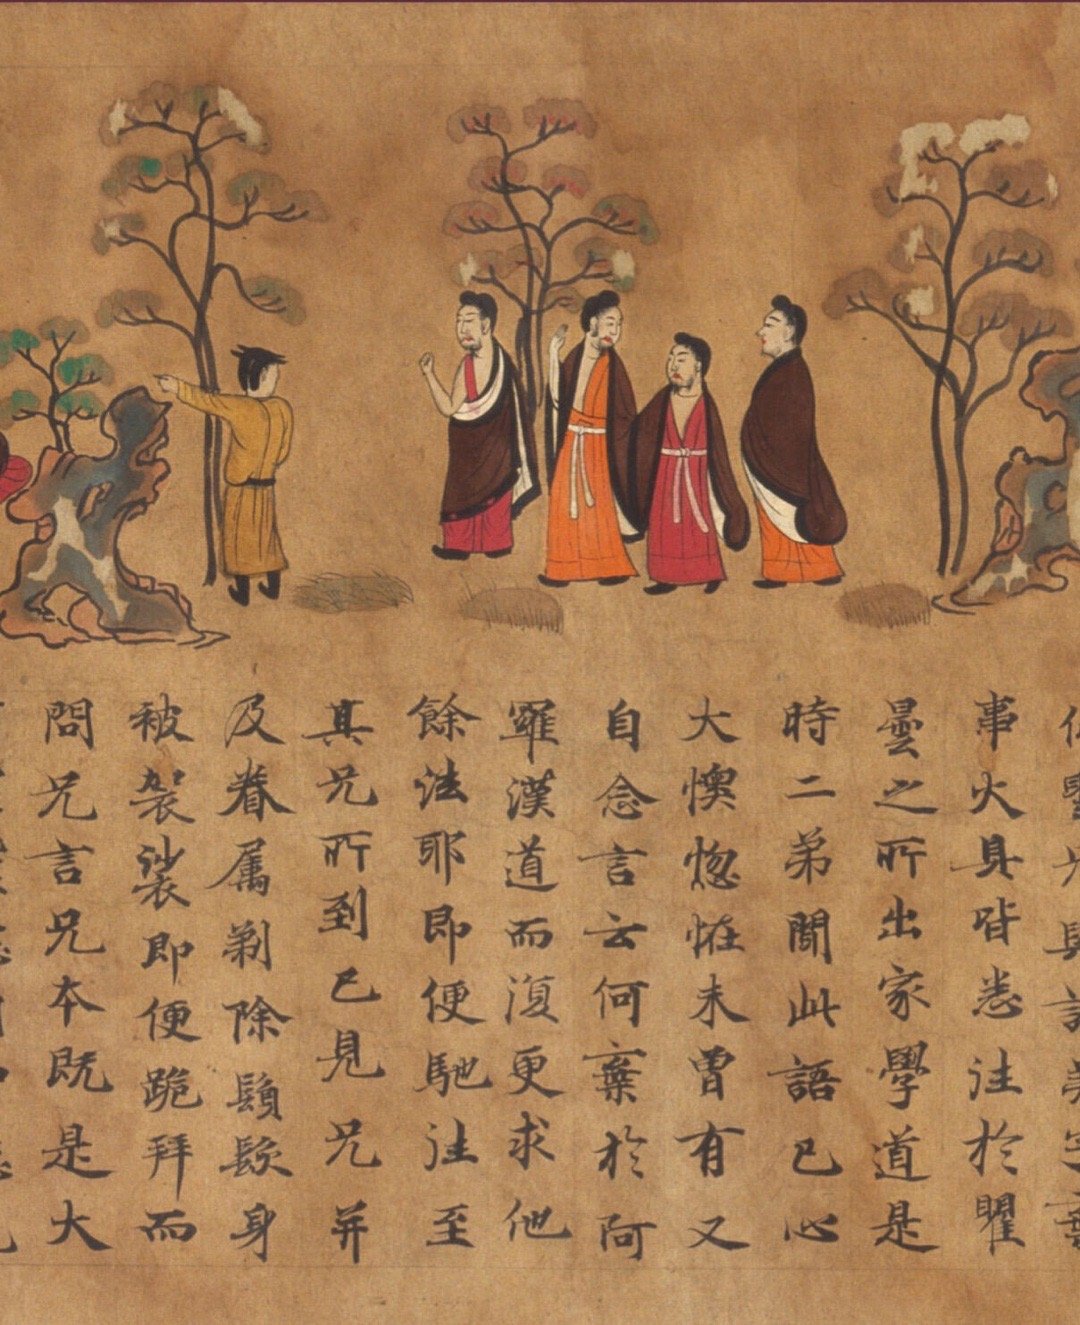 事火具皆悉往於瞿
曇之所出家學道是
時二弟聞此語已心
大懊惚恠未曾有又
自念言云何棄於阿
羅漢道而復更求他
餘法耶即便馳往至
其兄所到已見兄并
及眷属剃除鬚髮身
被袈裟即便跪拜而
問兄言兄本既是大